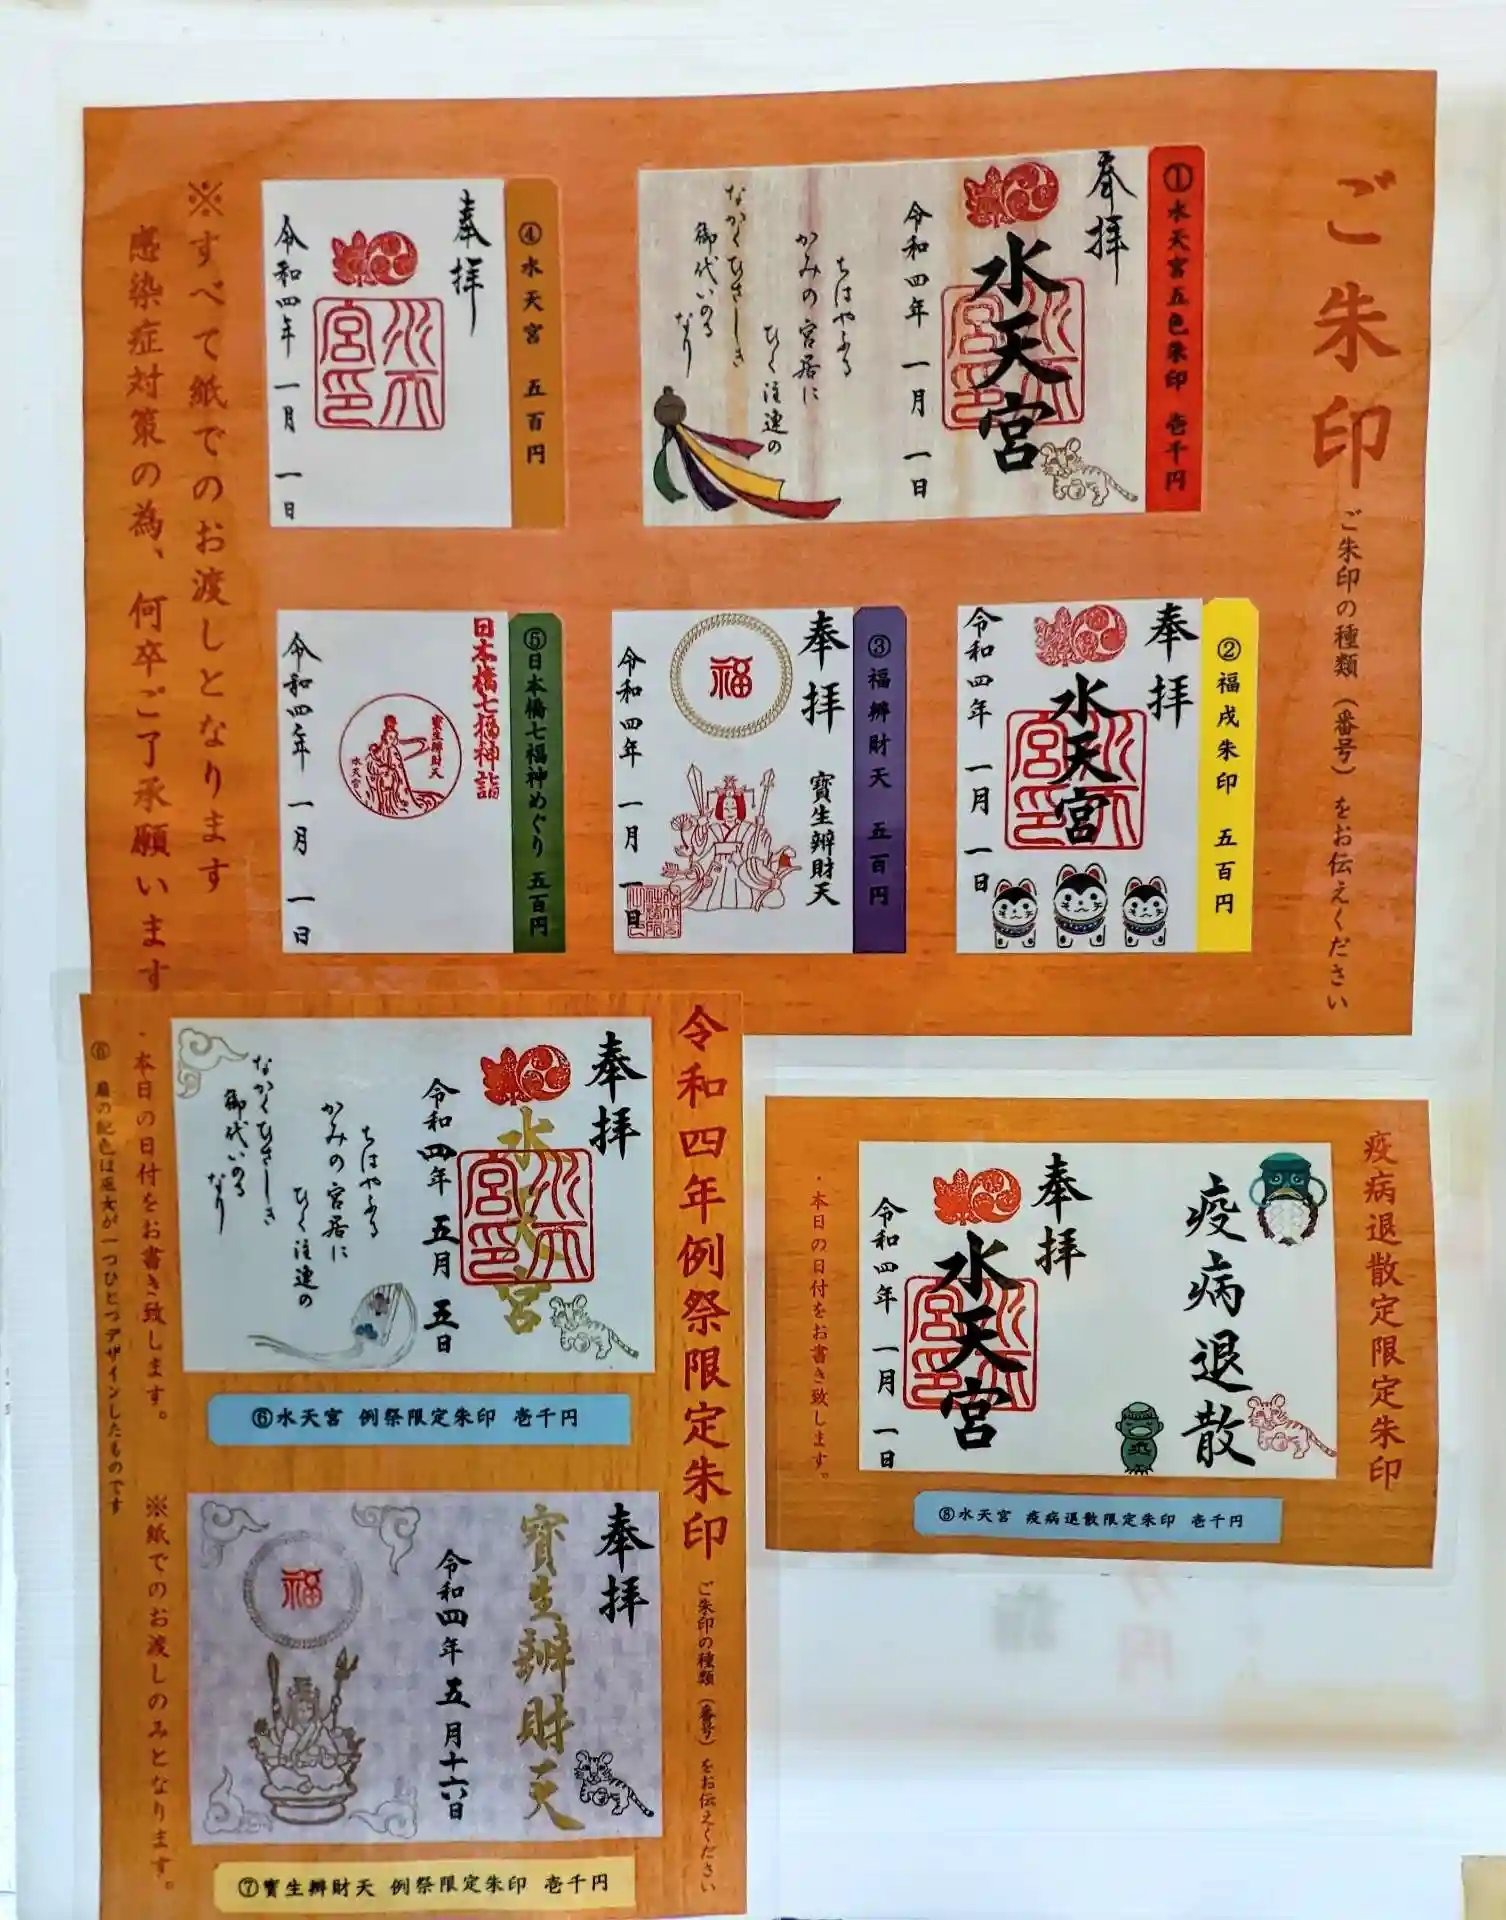 ご朱印
ご朱印の種類（番号）をお伝えください
①水天宮五色朱印　壱千円
奉拝
水天宮
令和四年　一月　一日
ちはやふる
かみの宮居に
ひく注連の
なかくひさしき
御代いのる
なり
④水天宮　五百円
奉拝
水天宮印
令和四年　一月　一日
②福戌朱印　五百円
奉拝
水天宮
水天宮印
令和四年　一月　一日
③福辨財天　五百円
奉拝
福
寶生辨財天
令和四年　一月　一日
⑤日本橋七福神めぐり　五百円
日本橋七福神詣
寶生辨財天
水天宮
令和四年　一月　一日
※すべて紙でのお渡しとなります
感染症対策の為、何卒ご了承願います
令和四年例祭限定朱印
ご朱印の種類（番号）をお伝えください
奉拝
水天宮
水天宮印
令和四年　五月　五日
ちはやふる
かみの宮居に
ひく注連の
なかくひさしき
御代いのる
なり
⑥水天宮　例祭限定朱印　壱千円
奉拝
寶生辨財天
令和四年　五月十六日
福
⑦寶生辨財天　例祭限定朱印　壱千円
・本日の日付をお書き致します。　※紙でのお渡しのみとなります。
⑥　扇の配色は巫女が一つひとつデザインしたものです
疫病退散定限定朱印
疫病退散
奉拝
水天宮
水天宮印
令和四年　一月　一日
・本日の日付をお書き致します。
⑧水天宮　疫病退散限定朱印　壱千円